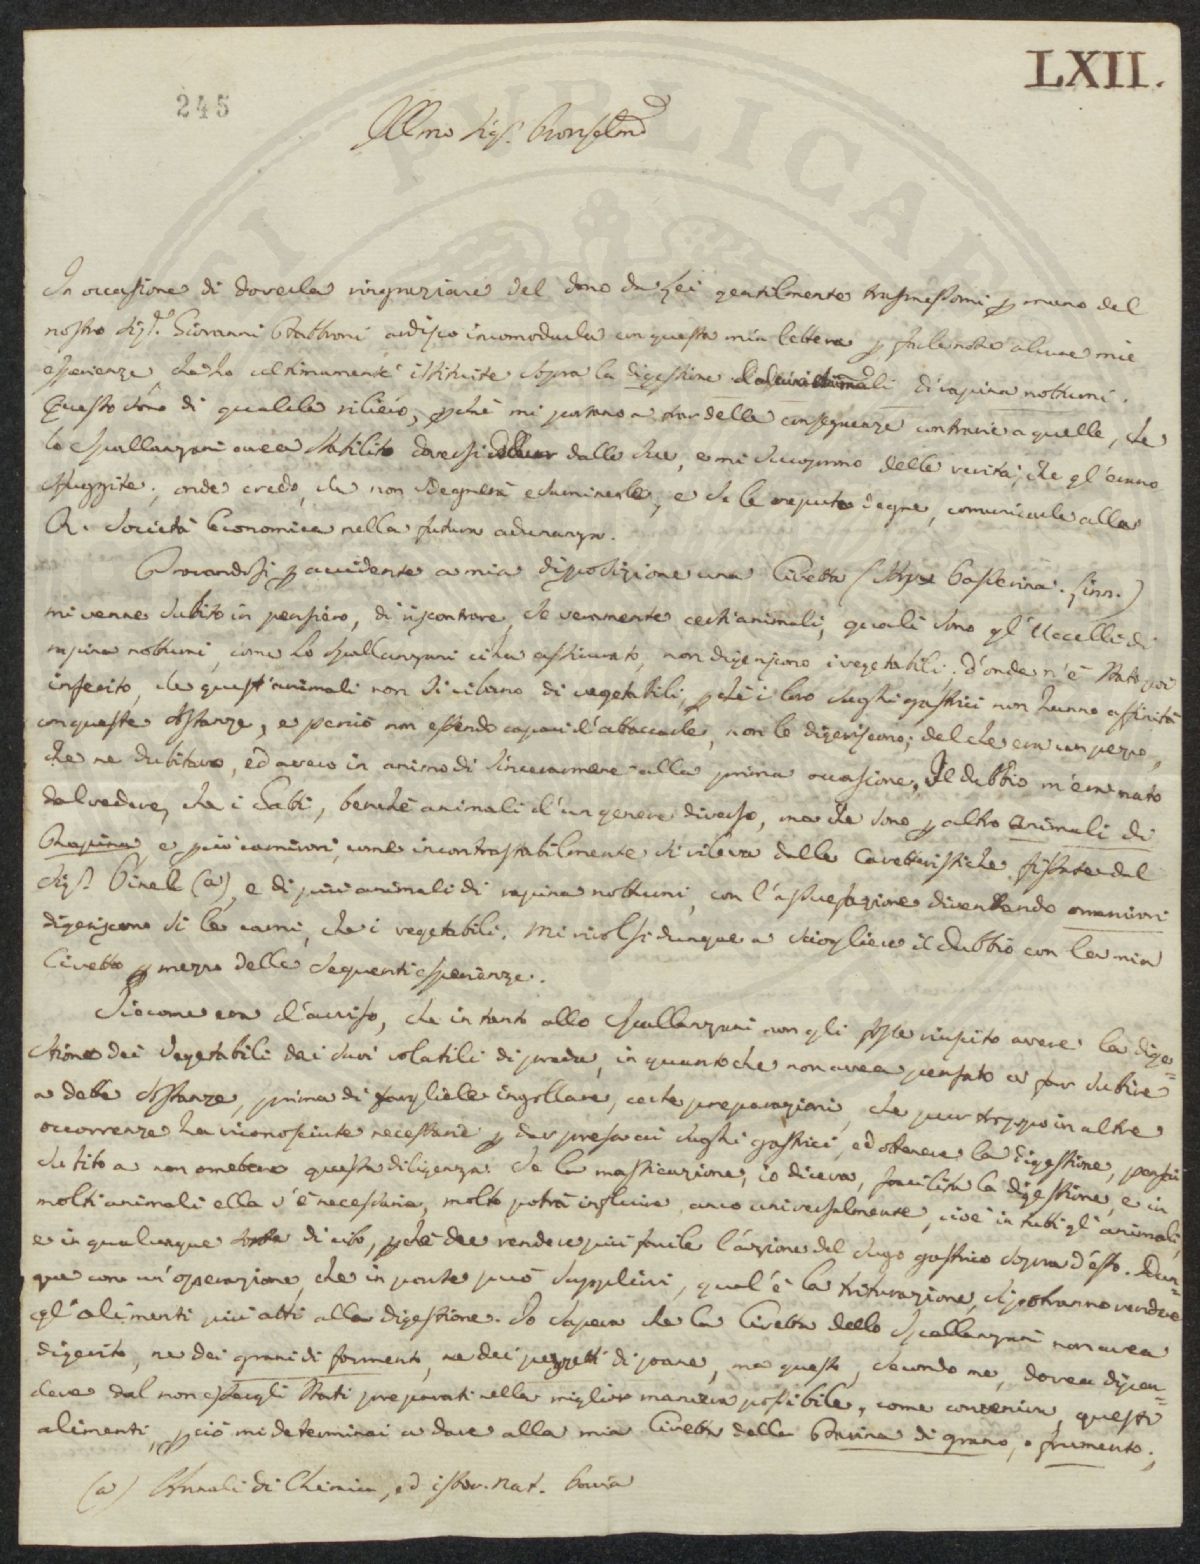 LXII.
245
Illmo Sig.
In occasione di doverla ringraziare del dono da Lei gentilmente trasmessomi p mano del
nostro Sig.r Giovanni Fabbroni ardisco incomodarla con questa mia lettera p farle note alcune mie
esperienze che ho ultimamente istituite sopra la digestione animali di rapina notturni.
Queste sono di qualche rilievo, pchè mi portano a trar delle conseguenze contrarie a quelle, che
lo Spallanzani avea stabilito doversi dalle sue, e mi scoprono delle verità, che gl'erano
sfuggite; onde credo, che non sdegnerà esaminarle, e se le reputa degne, comunicarle alla
R. Società Economica nella futura adunanza.
Trovandosi p accidente a mia disposizione una Civetta (Strix Passerina. Linn.)
mi venne subito in pensiero, di riscontrare, se veramente certi animali, quali sono gl'Uccelli di
rapina notturni, come lo Spallanzani ci ha assicurato, non digeriscono i vegetabili; d'onde n'è stato poi
inferito, che quest'animali non si cibano di vegetabili, pchè i loro sughi gastrici non hanno affinità
con queste sostanze, e perciò non essendo capaci d'attaccarle, non le digeriscono; del che era un pezzo,
che ne dubitavo, ed avevo in animo di sincerarmene alla prima occasione. Il dubbio m'era nato
dal vedere, che i Gatti, benchè animali d'un genere diverso, ma che sono p altro animali di
Rapina e più carnivori, come incontrastabilmente si rileva dalle caratteristiche fissate dal
Sig.r Pinel (a), e di più animali di rapina notturni, con l'assuefazione diventando omnivori
digeriscono sì le carni, che i vegetabili. Mi rivolsi dunque a sciogliere il dubbio con la mia
Civetta p mezzo delle seguenti esperienze.
Siccome era d'avviso, che in tanto allo Spallanzani non gli fosse riuscito avere la dige=
stione dei Vegetabili dai suoi volatili di preda, in quanto che non avea pensato a far subire
a dette sostanze, prima di fargliele ingollare, certe preparazioni, che pur troppo in altre
occorrenze ha riconosciute necessarie p dar presa ai sughi gastrici, ed ottenere la digestione, pensai
subito a non omettere questa diligenza. Se la masticazione, io diceva, facilita la digestione, e in
molti animali ella v'è necessaria, molto potrà influire anco universalmente, cioè in tutti gl'animali,
e in qualunque sorte di cibo, pchè dee rendere più facile l'azione del sugo gastrico sopra d'esso. Dun=
que con un'operazione, che in parte può supplirvi, qual'è la triturazione, si potranno rendere
gl'alimenti più atti alla digestione. Io sapeva che la Civetta dello Spallanzani non avea
digerito, ne dei grani di formento, ne dei pezzetti di pane, ma questo, secondo me, dovea dipen=
dere dal non essergli stati preparati nella miglior maniera possibile, come conveniva, questi
alimenti, pciò mi determinai a dare alla mia Civetta della Farina di grano, o frumento;
(a) Annali di Chimica, ed istor. Nat. Pavia